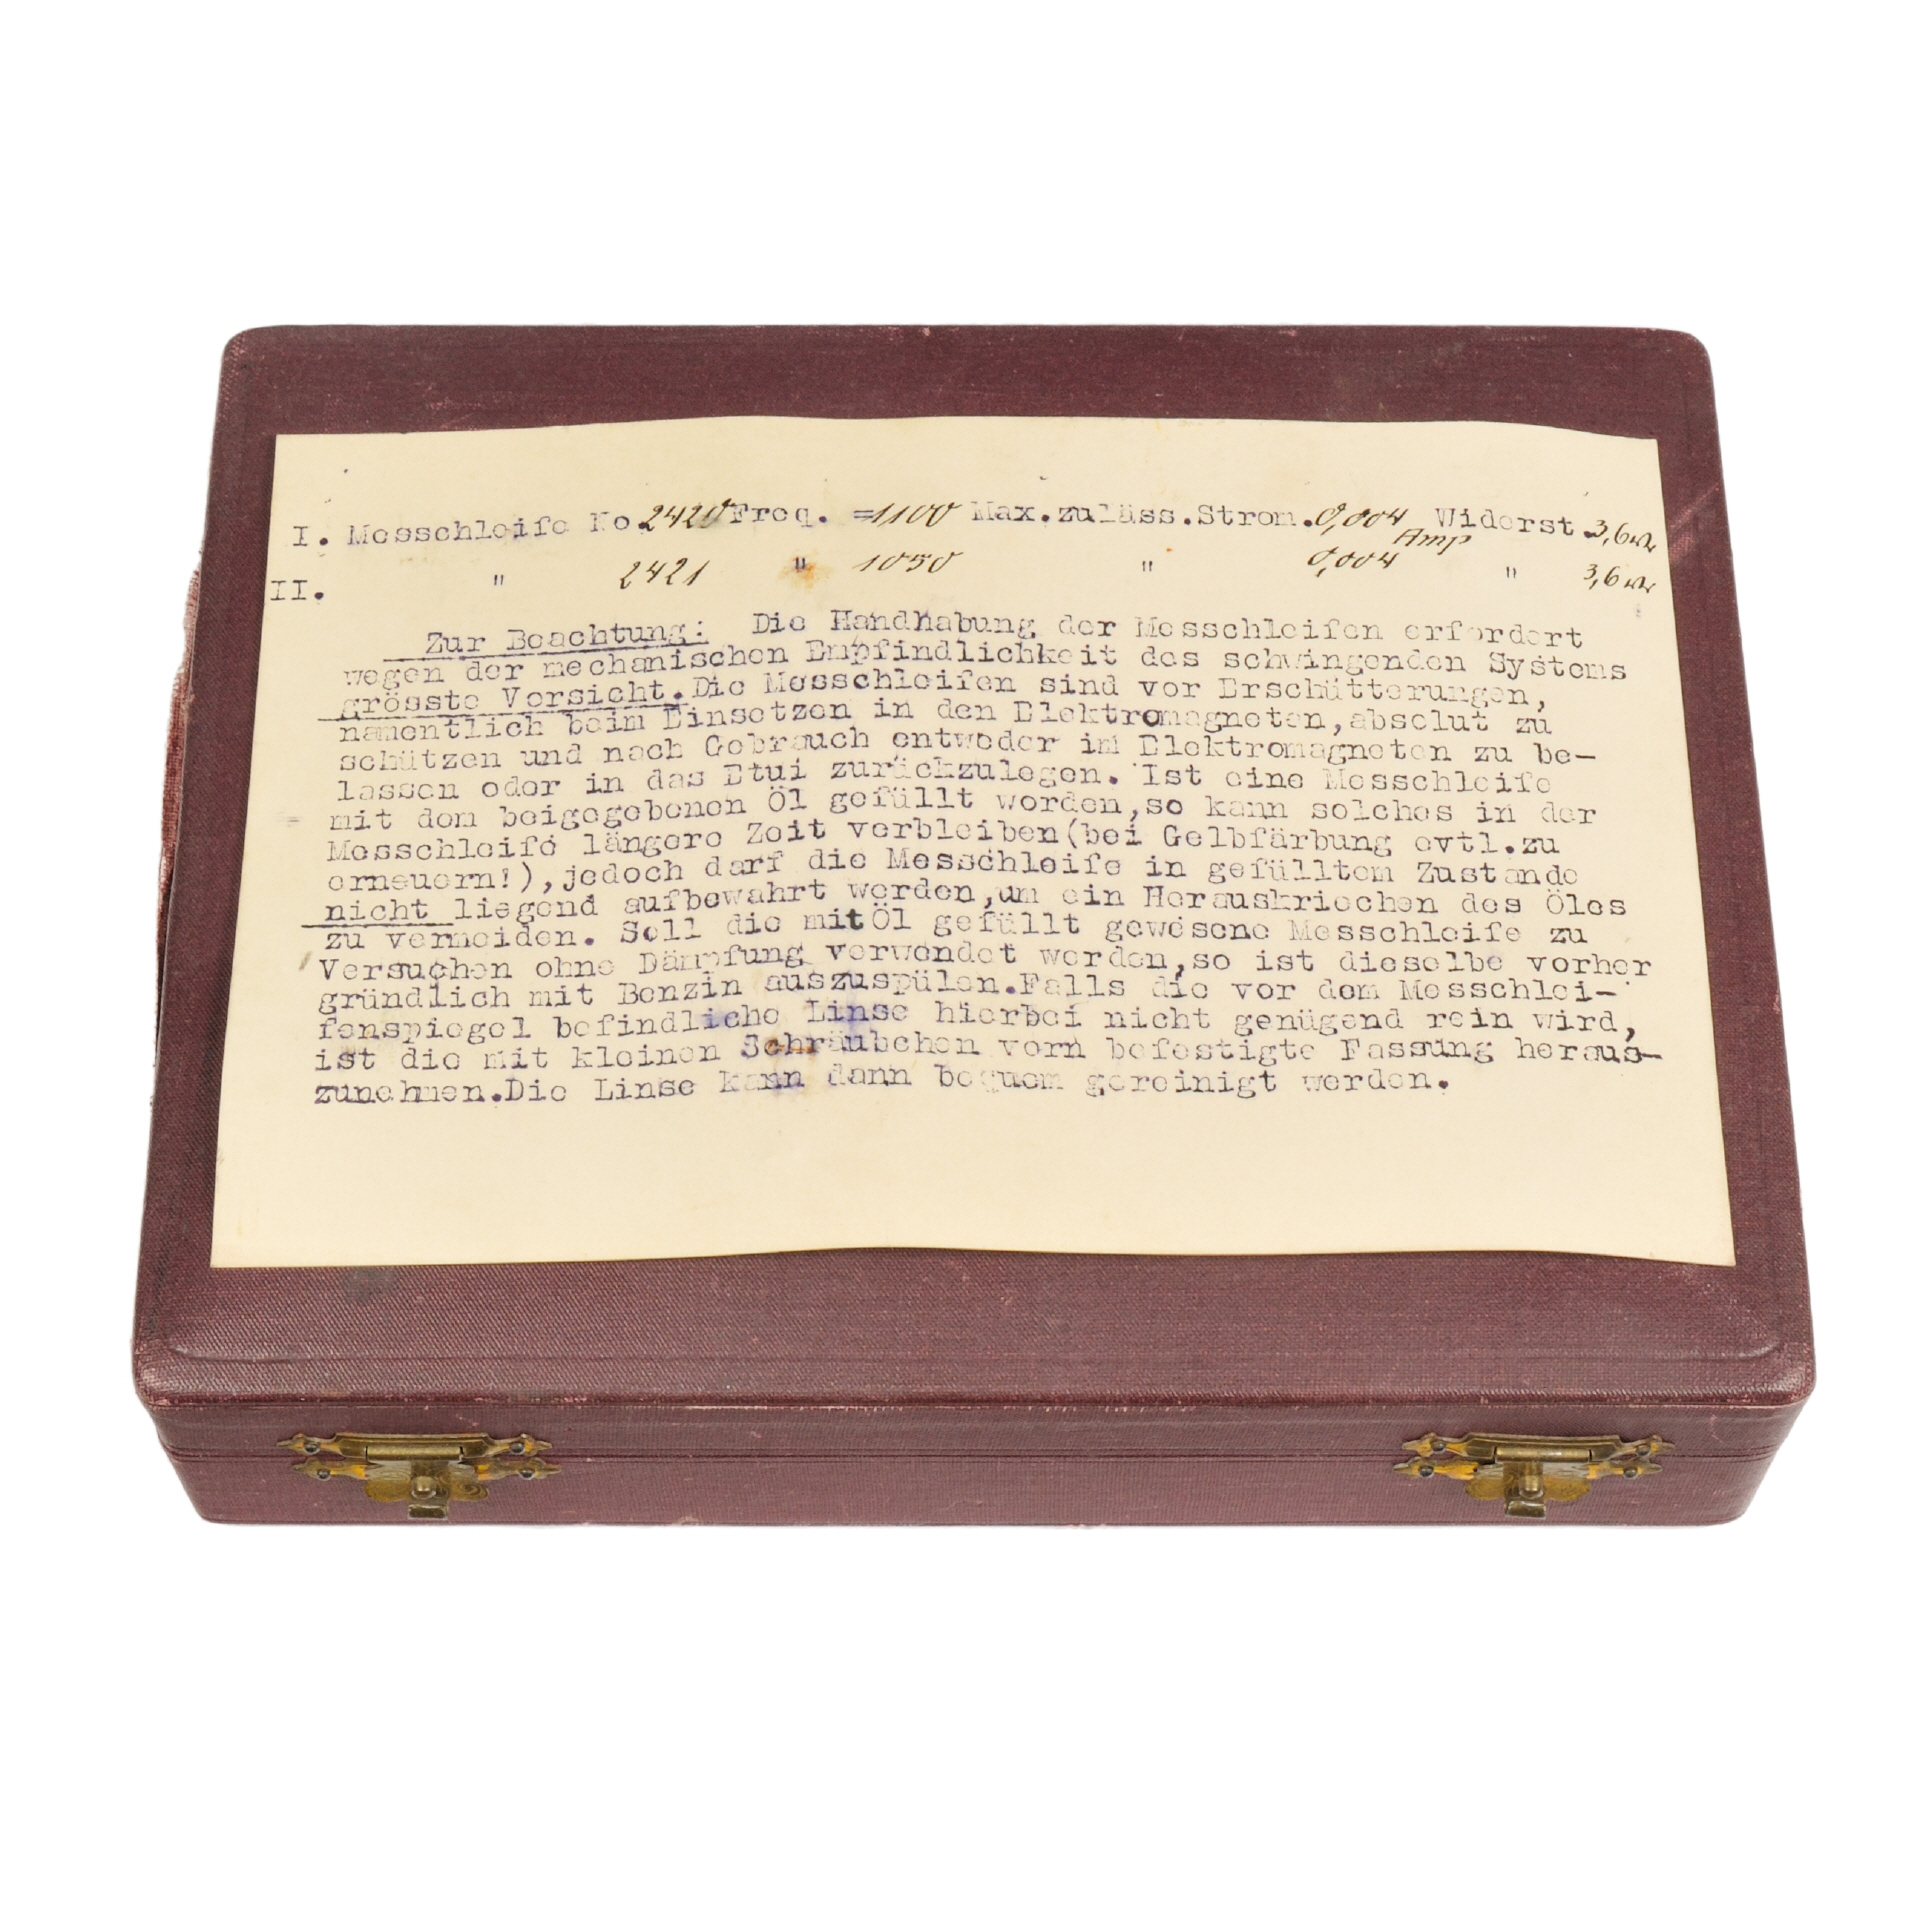 I. Messchleife No 2420 Freq. =1100 Max.zuläss.Strom.0,004 Amp Widerst.3,6 ω
II. " 2421 " 1050 " 0,004 " 3,6 ω
Zur Beachtung: Die Handhabung der Messchleifen erfordert
wegen der mechanischen Empfindlichkeit des schwingenden Systems
grösste Vorsicht.Die Messchleifen sind vor Erschütterungen,
namentlich beim Einsetzen in den Elektromagneten,absolut zu
schützen und nach Gebrauch entweder im Elektromagneten zu be-
lassen oder in das Etui zurückzulegen. Ist eine Messchleife
mit dem beigegebenen Öl gefüllt worden,so kann solches in der
Messchleife längere Zeit verbleiben(bei Gelbfärbung evtl.zu
erneuern!),jedoch darf die Messchleife in gefülltem Zustande
nicht liegend aufbewahrt werden,um ein Herauskriechen des Öles
zu vermeiden. Soll die mit Öl gefüllt gewesene Messchleife zu
Versuchen ohne Dämpfung verwendet werden,so ist dieselbe vorher
gründlich mit Benzin auszuspülen.Falls die vor dem Messchlei-
fenspiegel befindliche Linse hierbei nicht genügend rein wird,
ist die mit kleinen Schräubchen vorn befestigte Fassung heraus-
zunehmen.Die Linse kann dann bequem gereinigt werden.